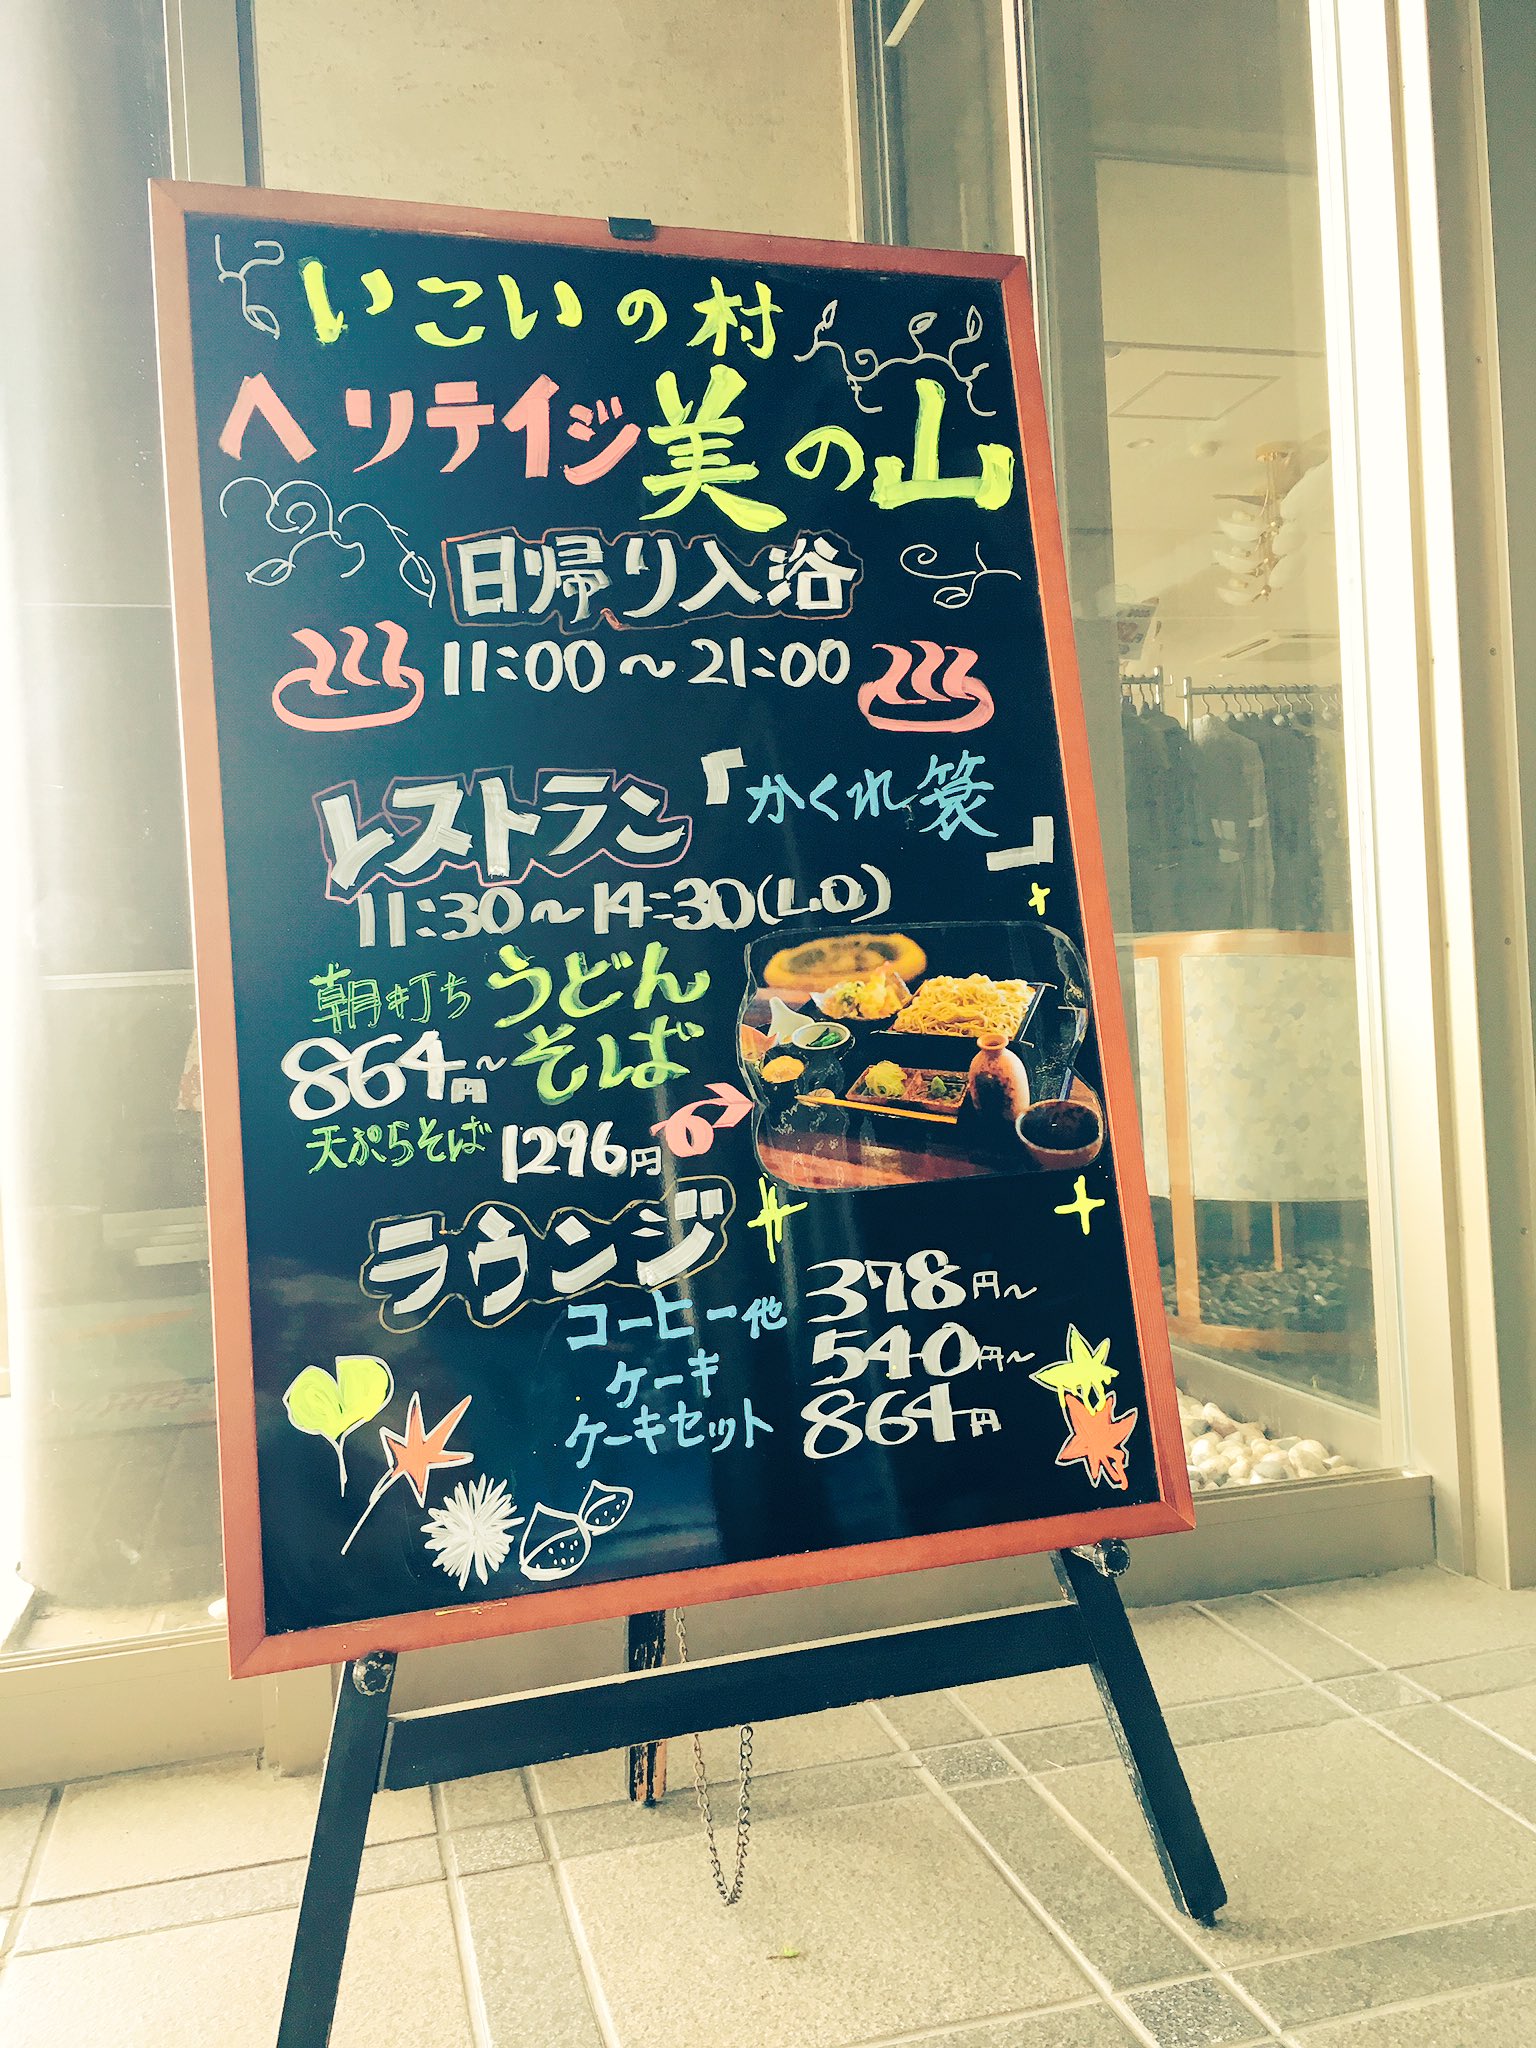 いこいの村
ヘリテイジ美の山
日帰り入浴
11:00～21:00
レストラン「かくれ蓑」
11:30～14:30(L.O)
朝打ち うどん
そば
864円～
天ぷらそば 1296円
ラウンジ
コーヒー他 378円～
ケーキ 540円～
ケーキセット 864円